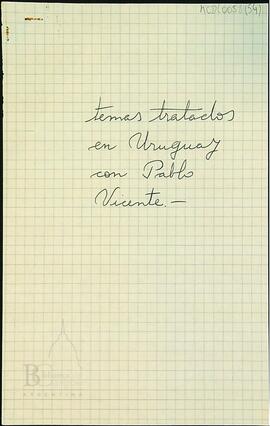 temas tratados
en Uruguay
con Pablo
Vicente.—
ARGENTINA